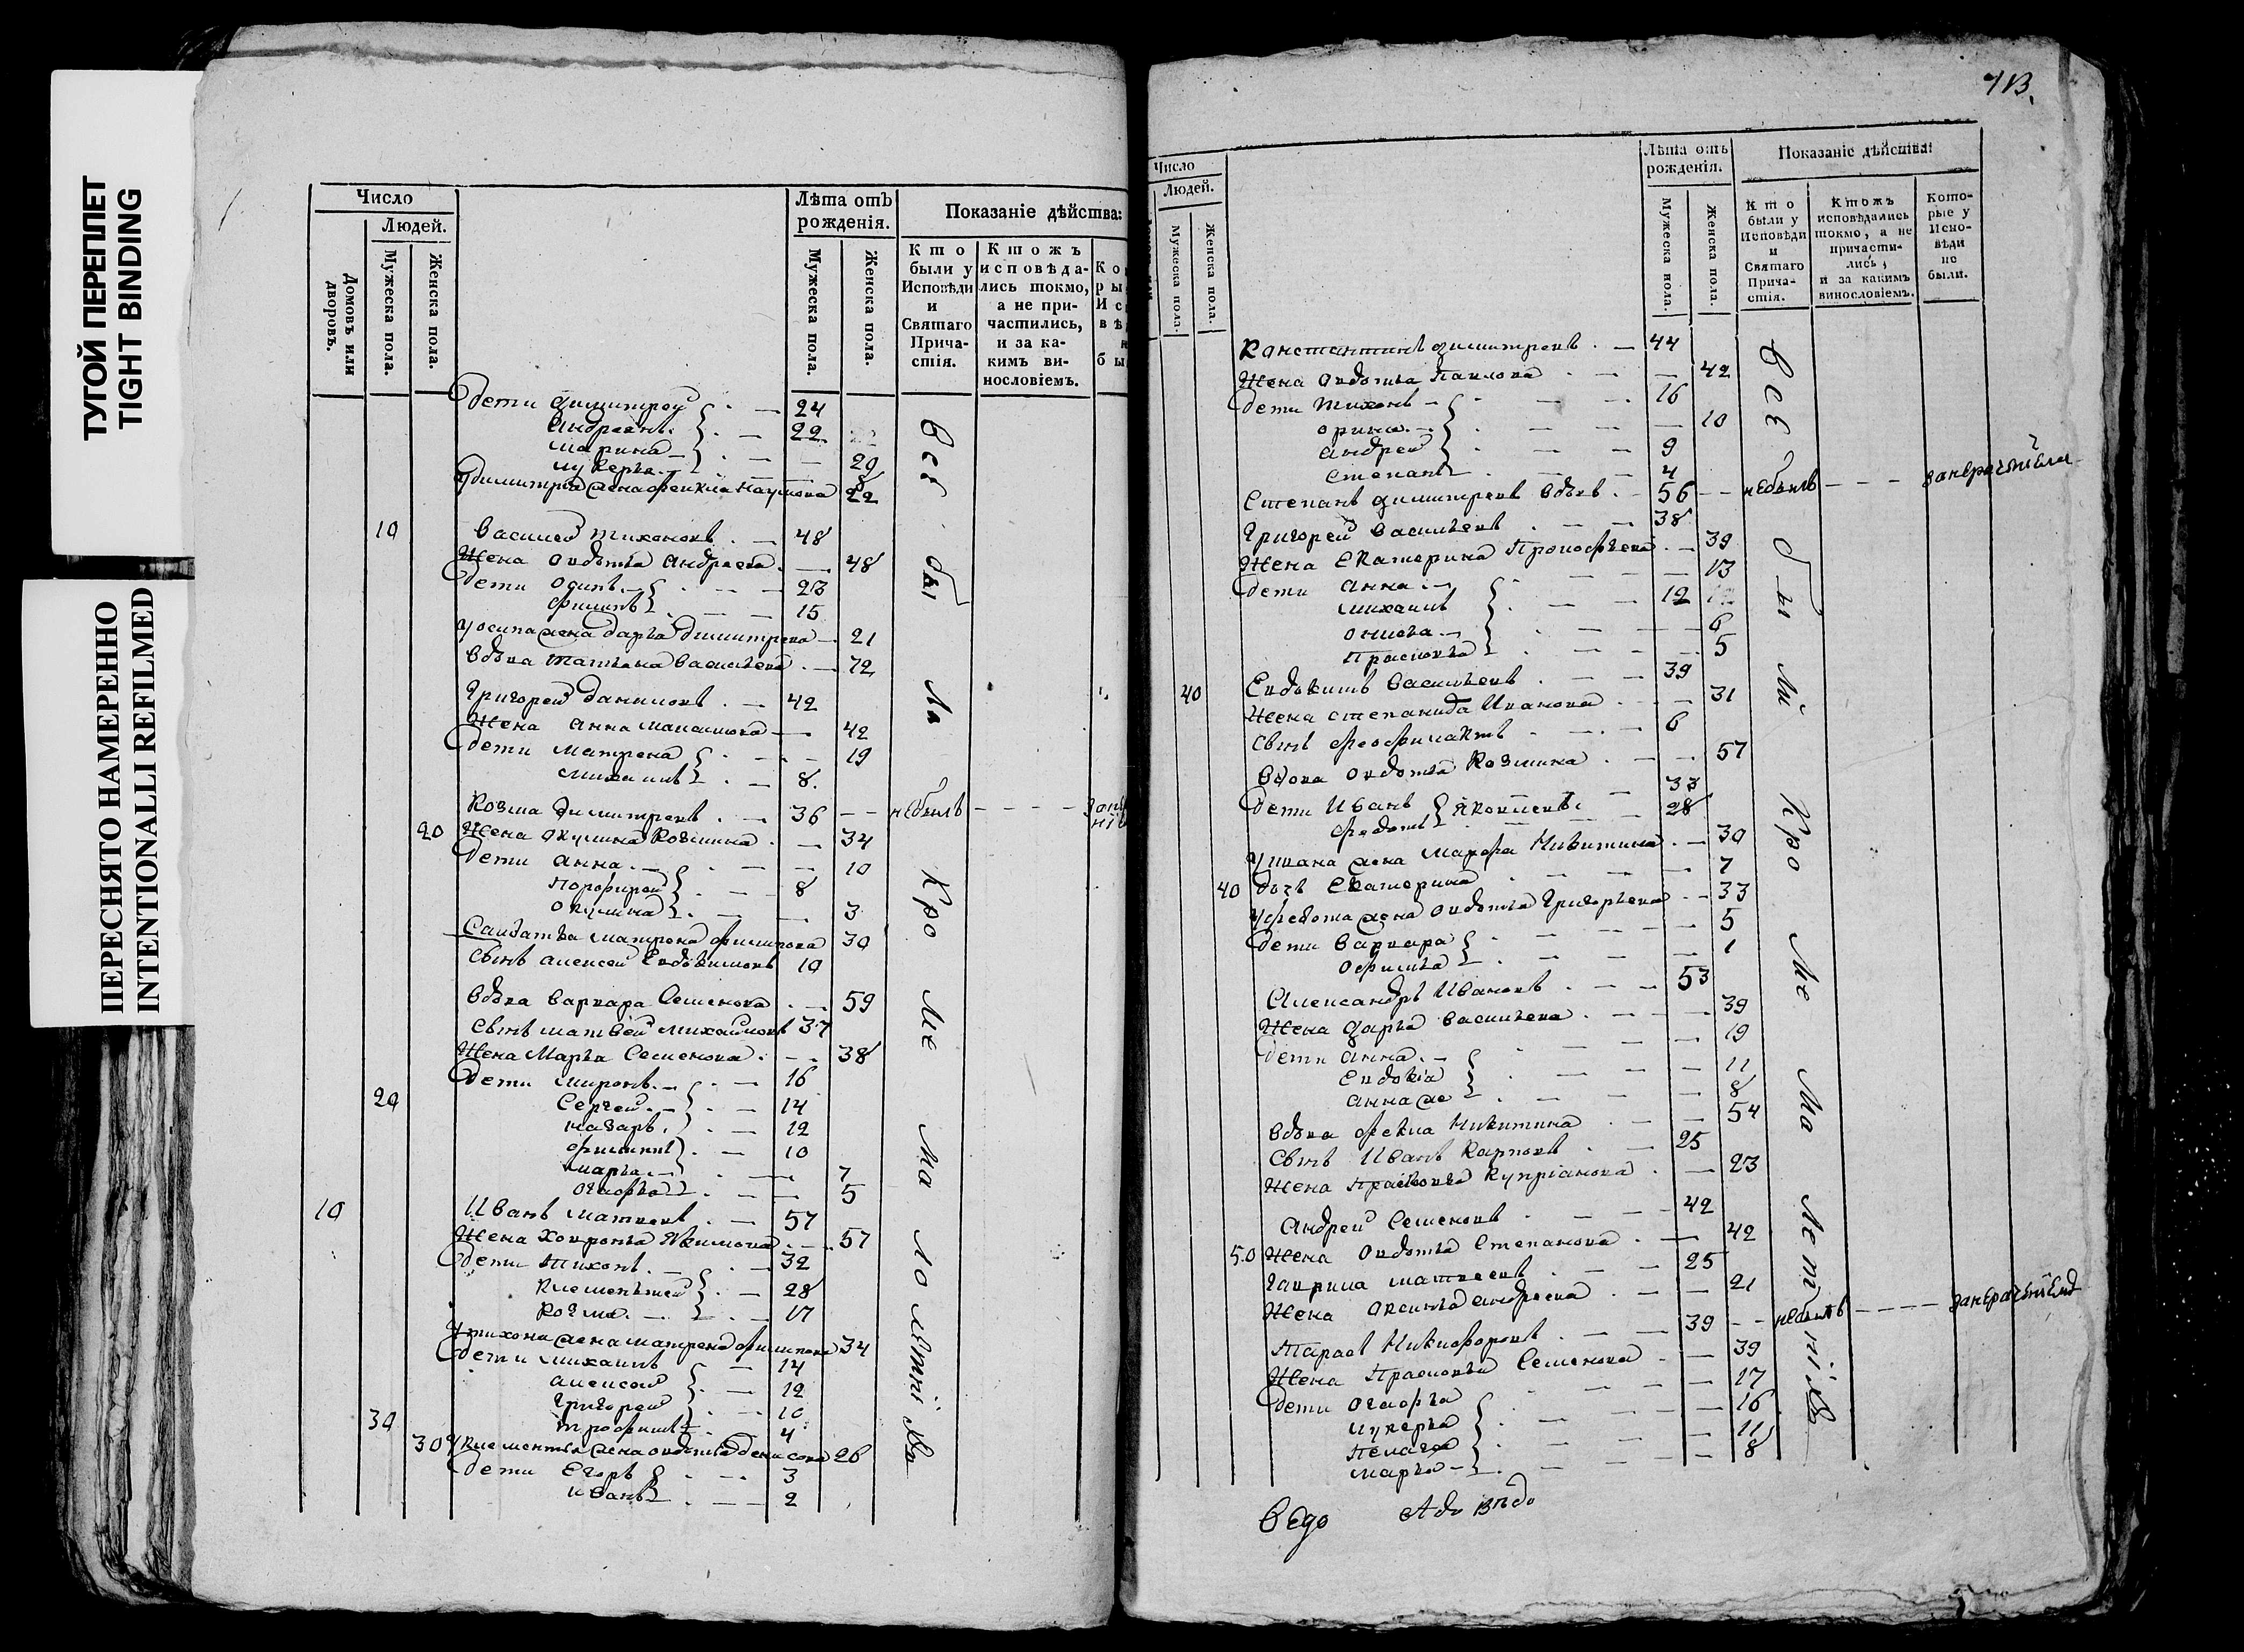 ТУГОЙ ПЕРЕПЛЕТ
TIGHT BINDING
ПЕРЕСНЯТО НАМЕРЕННО
INTENTIONALLI REFILMED
Число
Людей.
Домовъ или дворовъ.
Мужеска пола.
Женска пола.
Лѣта отъ рожденія.
Мужеска пола.
Женска пола.
Показаніе дѣйства:
Кто были у Исповѣди и Святаго Прича-стія.
Ктожъ исповѣда-лись токмо, а не при-частились, и за ка-кимъ ви-нословіемъ.
дети димитрей 24
андреянъ 22
марина 29
лукерья 8
у димитрея жена фекла наумова 22
10 василей тихоновъ 48
жена овдотья андреева 48
дети осипъ 23
филипъ 15
у осипа жена дарья димитрева 21
вдова татьяна васильева 72
григорей даниловъ 42
жена анна максимова 42
дети матрена 19
михаилъ 8
козма димитревъ 36 небылъ
20 жена окулина козмина 34
дети анна 10
порфирей 8
окулина 3
салдатка матрена филипова 30
сынъ алексей евдокимовъ 10
вдова варвара семенова 59
сынъ матвей михайловъ 37
жена марья семенова 38
дети миронъ 16
20 сергей 14
назаръ 12
филипъ 10
марья 7
огафья 5
10 иванъ матвеевъ 57
жена ховронья якимова 57
дети тихонъ 32
клементей 28
козма 17
у тихона жена матрена филипова 34
дети михаилъ 14
алексей 12
григорей 10
30 трофимъ 4
30 у клементья жена овдотья денисова 26
дети егоръ 3
иванъ 2
Все бы ли кро ме ма лолѣтнихъ
713.
Число
Людей.
Мужеска пола.
Женска пола.
Лѣта отъ рожденія.
Мужеска пола.
Женска пола.
Показаніе дѣйства:
Кто были у Исповѣди и Святаго Прича-стія.
Ктожъ исповѣдались токмо, а не причасти-лись, и за какимъ винословіемъ.
Кото-рые у Испо-вѣди не были.
константинъ димитревъ 44
жена овдотья павлова 42
дети тихонъ 16
орина 10
андрей 9
степанъ 4
степанъ димитревъ вдовъ 56 небылъ
григорей васильевъ 38
жена екатерина прокофьева 39
дети анна 13
михаилъ 12
онисья 6
прасковья 5
40 евдокимъ васильевъ 39
жена степанида иванова 31
сынъ феофилактъ 6
вдова овдотья козмина 57
дети иванъ 33
федотъ яковлевъ 28
у ивана жена марфа никитина 30
40 дочь екатерина 7
у федота жена овдотья григорьева 33
дети варвара 5
офимья 1
александръ ивановъ 53
жена дарья васильева 39
дети анна 19
евдокія 11
анна же 8
вдова фекла никитина 54
сынъ иванъ карповъ 25
жена прасковья купріанова 23
андрей семеновъ 42
50 жена овдотья степанова 42
гаврила матвеевъ 25
жена оксинья андреева 21
тарасъ никифоровъ 39 небылъ
жена прасковья семенова 39
дети огафья 17
лукерья 16
пелагея 11
марья 8
Все бы ли кро ме ма летнихъ